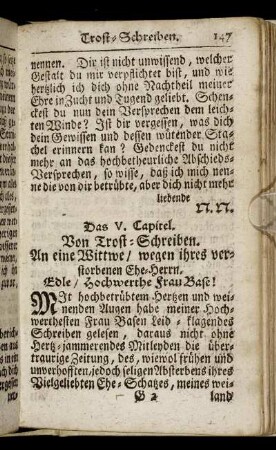 Trost-Schreiben. 147
nennen. Dir ist nicht unwissend, welcher
Gestalt du mir verpflichtet bist, und wie
hertzlich ich dich ohne Nachtheil meiner
Ehre in Zucht und Tugend geliebt. Schen-
ckest du nun dein Versprechen dem leich-
ten Winde? Ist dir vergessen, was dich
dein Gewissen und dessen wütender Sta-
chel erinnern kan? Gedenckest du nicht
mehr an das hochbetheurliche Abschieds-
Versprechen, so wisse, daß ich mich nen-
ne die von dir betrübte, aber dich nicht mehr
liebende
N. N.
Das V. Capitel.
Von Trost-Schreiben.
An eine Wittwe/ wegen ihres ver-
storbenen Ehe-Herrn.
Edle/ Hochwerthe Frau Base!
Mit hochbetrübtem Hertzen und wei-
nenden Augen habe meiner Hoch-
werthesten Frau Basen Leid-klagendes
Schreiben gelesen, daraus nicht ohne
Hertz-jammerendes Mitleyden die über-
traurige Zeitung, des, wiewol frühen und
unverhofften, jedoch seligen Absterbens ihres
Vielgeliebten Ehe-Schatzes, meines wei-
G 2 land